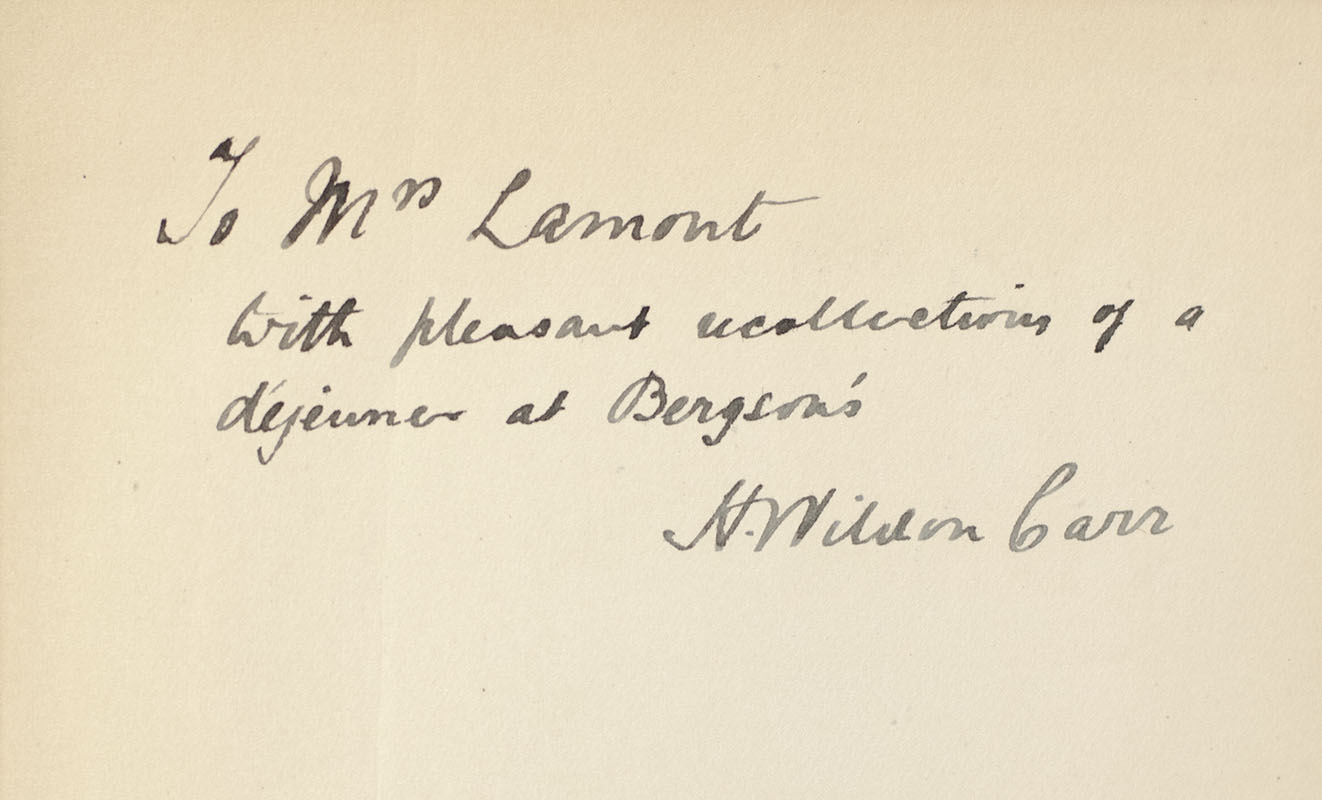 To Mrs Lamont
with pleasant recollections of a
déjeuner at Bergson's
H. Wildon Carr